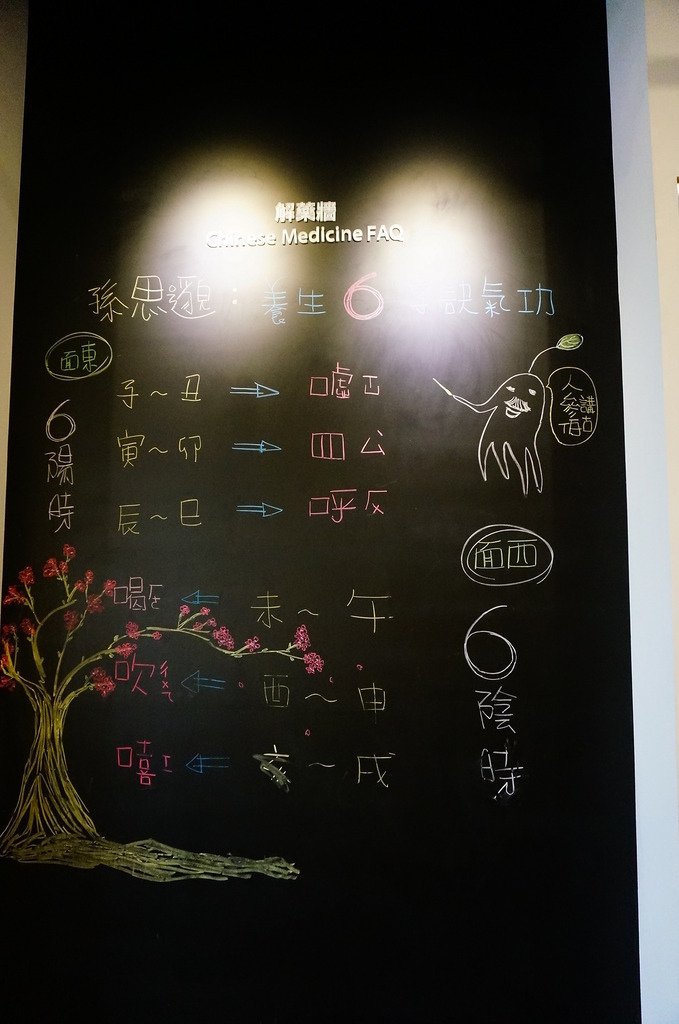 解藥牆
Chinese Medicine FAQ
孫思邈：養生6字訣氣功
面東
6陽時
子～丑 ⇒ 噓
寅～卯 ⇒
辰～巳 ⇒ 呼
人參伯講古
面西
6陰時
⇐ 未～午
吹 ⇐ 酉～申
嘻 ⇐ 亥～戌